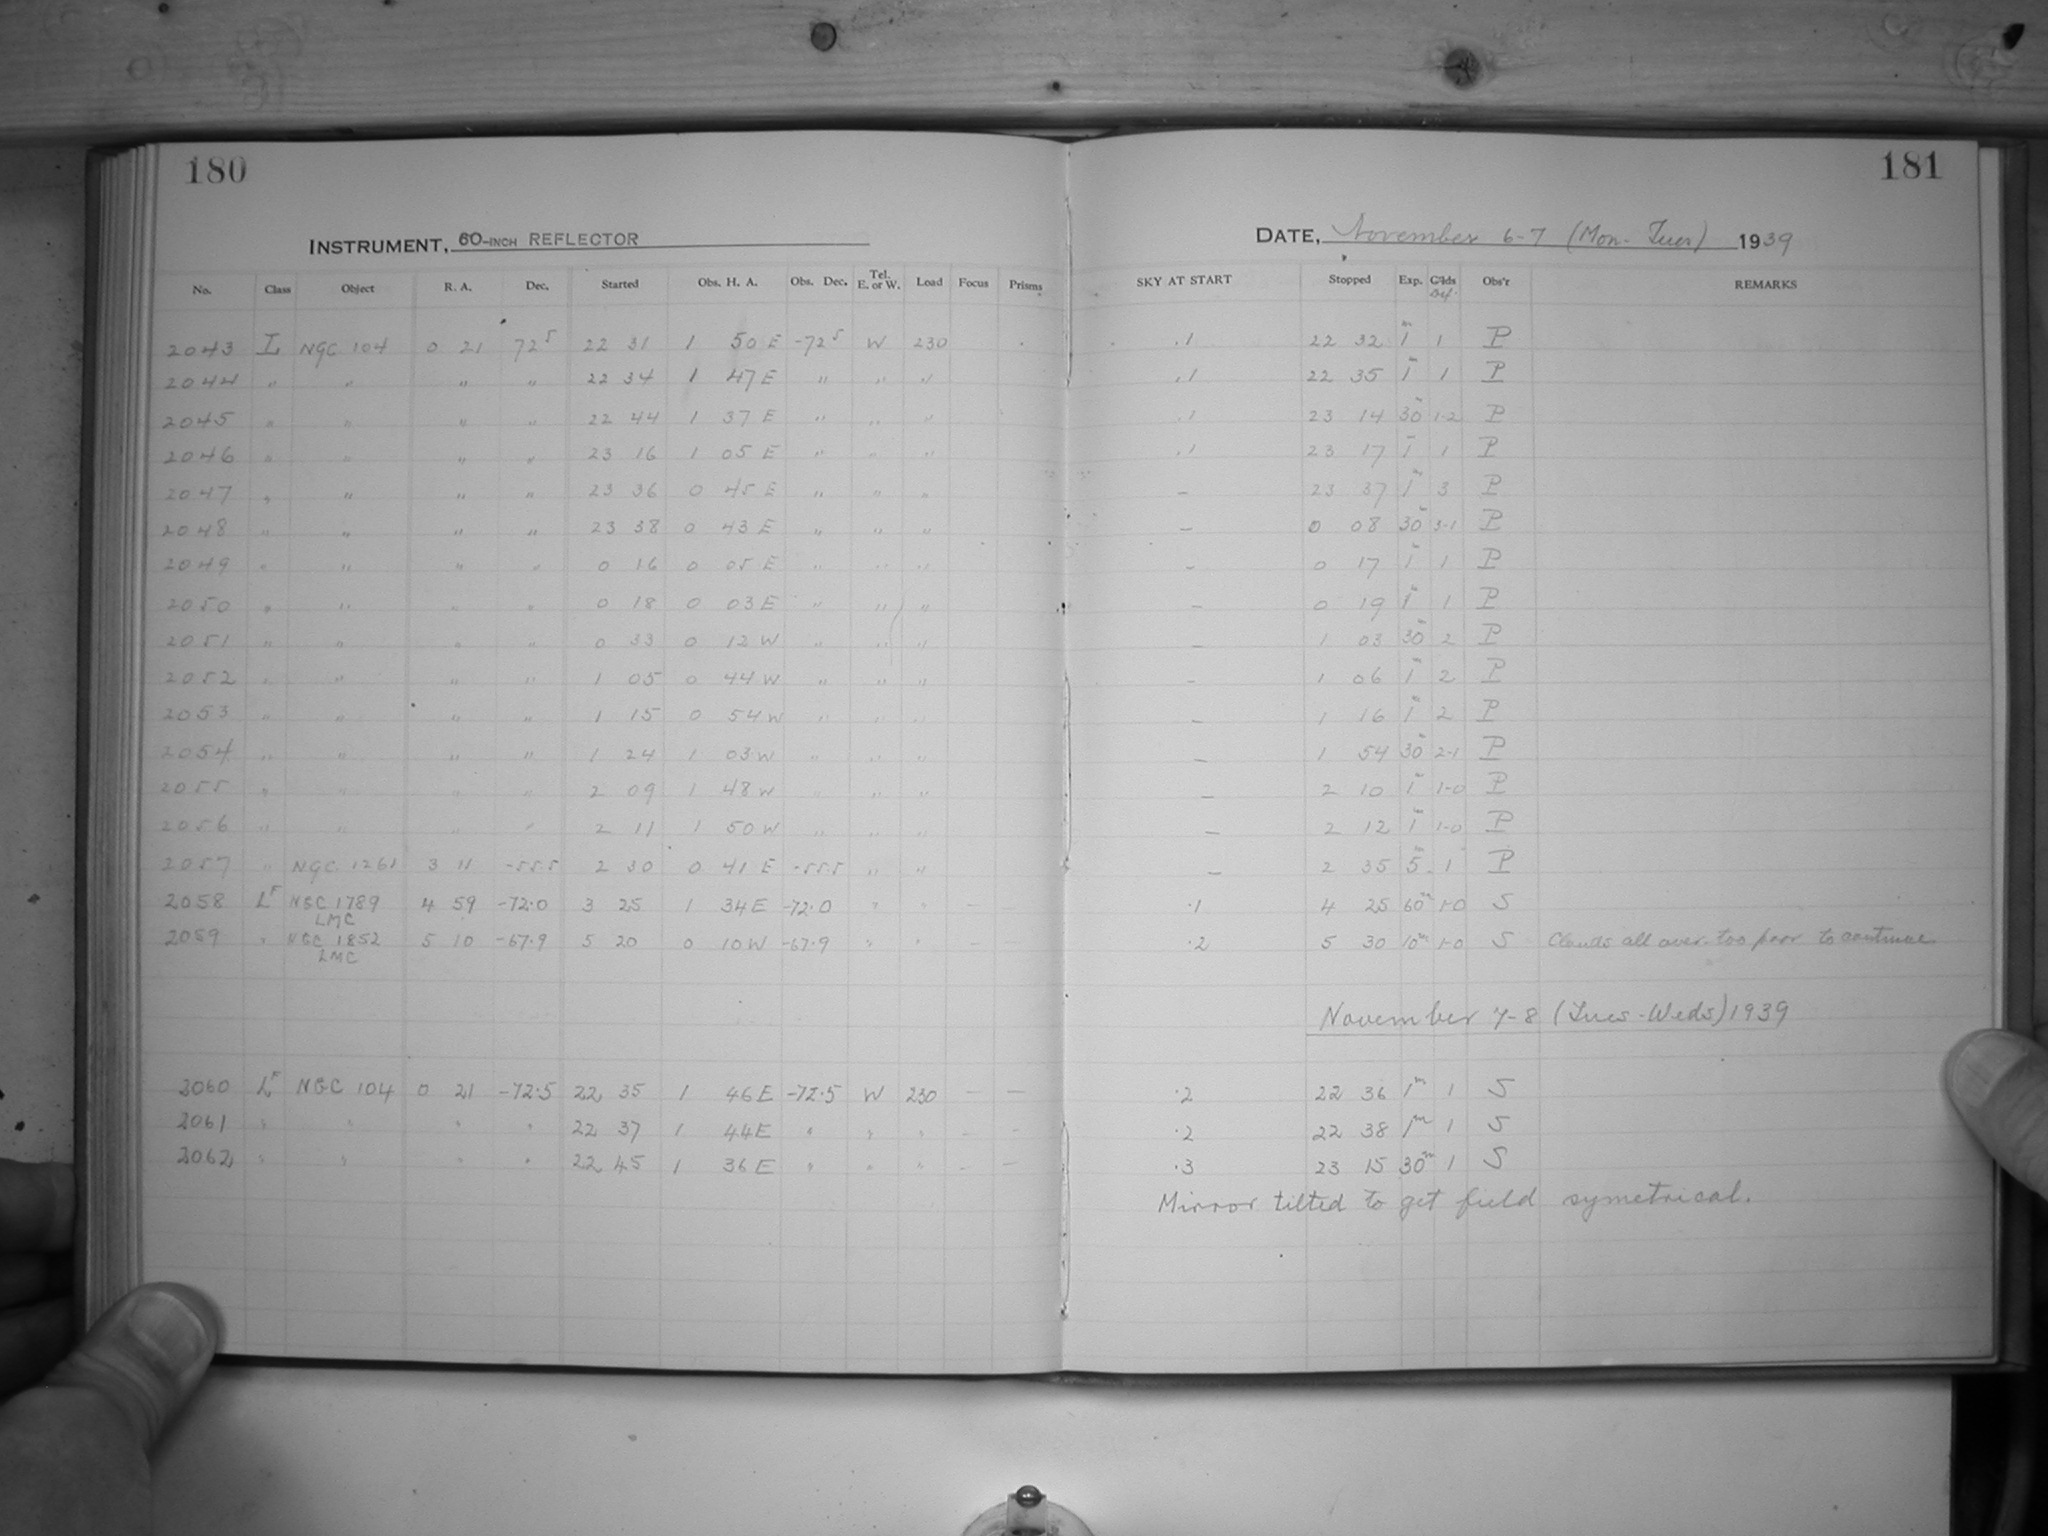 180
181
INSTRUMENT, 60-INCH REFLECTOR
DATE, November 6-7 (Mon-Tues) 1939
No. Class Object R. A. Dec. Started Obs. H. A. Obs. Dec. Tel. E. or W. Load Focus Prisms SKY AT START Stopped Exp. G'lds Def. Obs'r REMARKS
2043 L NGC 104 0 21 72⁵ 22 31 1 50 E -72⁵ W 230 .1 22 32 1ᵐ 1 P
2044 " " " " 22 34 1 47 E " " " .1 22 35 1ᵐ 1 P
2045 " " " " 22 44 1 37 E " " " .1 23 14 30ᵐ 1-2 P
2046 " " " " 23 16 1 05 E " " " .1 23 17 1ᵐ 1 P
2047 " " " " 23 36 0 45 E " " " – 23 37 1ᵐ 3 P
2048 " " " " 23 38 0 43 E " " " – 0 08 30ᵐ 3-1 P
2049 " " " " 0 16 0 05 E " " " – 0 17 1ᵐ 1 P
2050 " " " " 0 18 0 03 E " " " – 0 19 1ᵐ 1 P
2051 " " " " 0 33 0 12 W " " " – 1 03 30ᵐ 2 P
2052 " " " " 1 05 0 44 W " " " – 1 06 1ᵐ 2 P
2053 " " " " 1 15 0 54 W " " " – 1 16 1ᵐ 2 P
2054 " " " " 1 24 1 03 W " " " – 1 54 30ᵐ 2-1 P
2055 " " " " 2 09 1 48 W " " " – 2 10 1ᵐ 1-0 P
2056 " " " " 2 11 1 50 W " " " – 2 12 1ᵐ 1-0 P
2057 " NGC 1261 3 11 -55.5 2 30 0 41 E -55.5 " " – 2 35 5ᵐ 1 P
2058 Lᶠ NGC 1789 4 59 -72.0 3 25 1 34 E -72.0 " " – – .1 4 25 60ᵐ 1-0 S
LMC
2059 " NGC 1852 5 10 -67.9 5 20 0 10 W -67.9 " " – – .2 5 30 10ᵐ 1-0 S Clouds all over. too poor to continue
LMC
November 7-8 (Tues-Weds) 1939
2060 Lᶠ NGC 104 0 21 -72.5 22 35 1 46 E -72.5 W 230 – – .2 22 36 1ᵐ 1 S
2061 " " " " 22 37 1 44 E " " " – – .2 22 38 1ᵐ 1 S
2062 " " " " 22 45 1 36 E " " " – – .3 23 15 30ᵐ 1 S
Mirror tilted to get field symetrical.